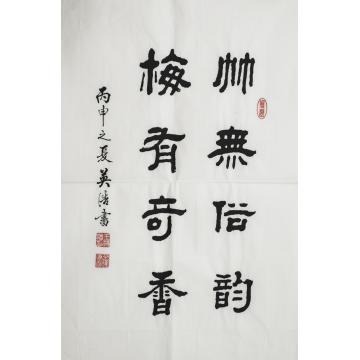 竹無俗韵
梅有奇香
丙申之夏英浩書